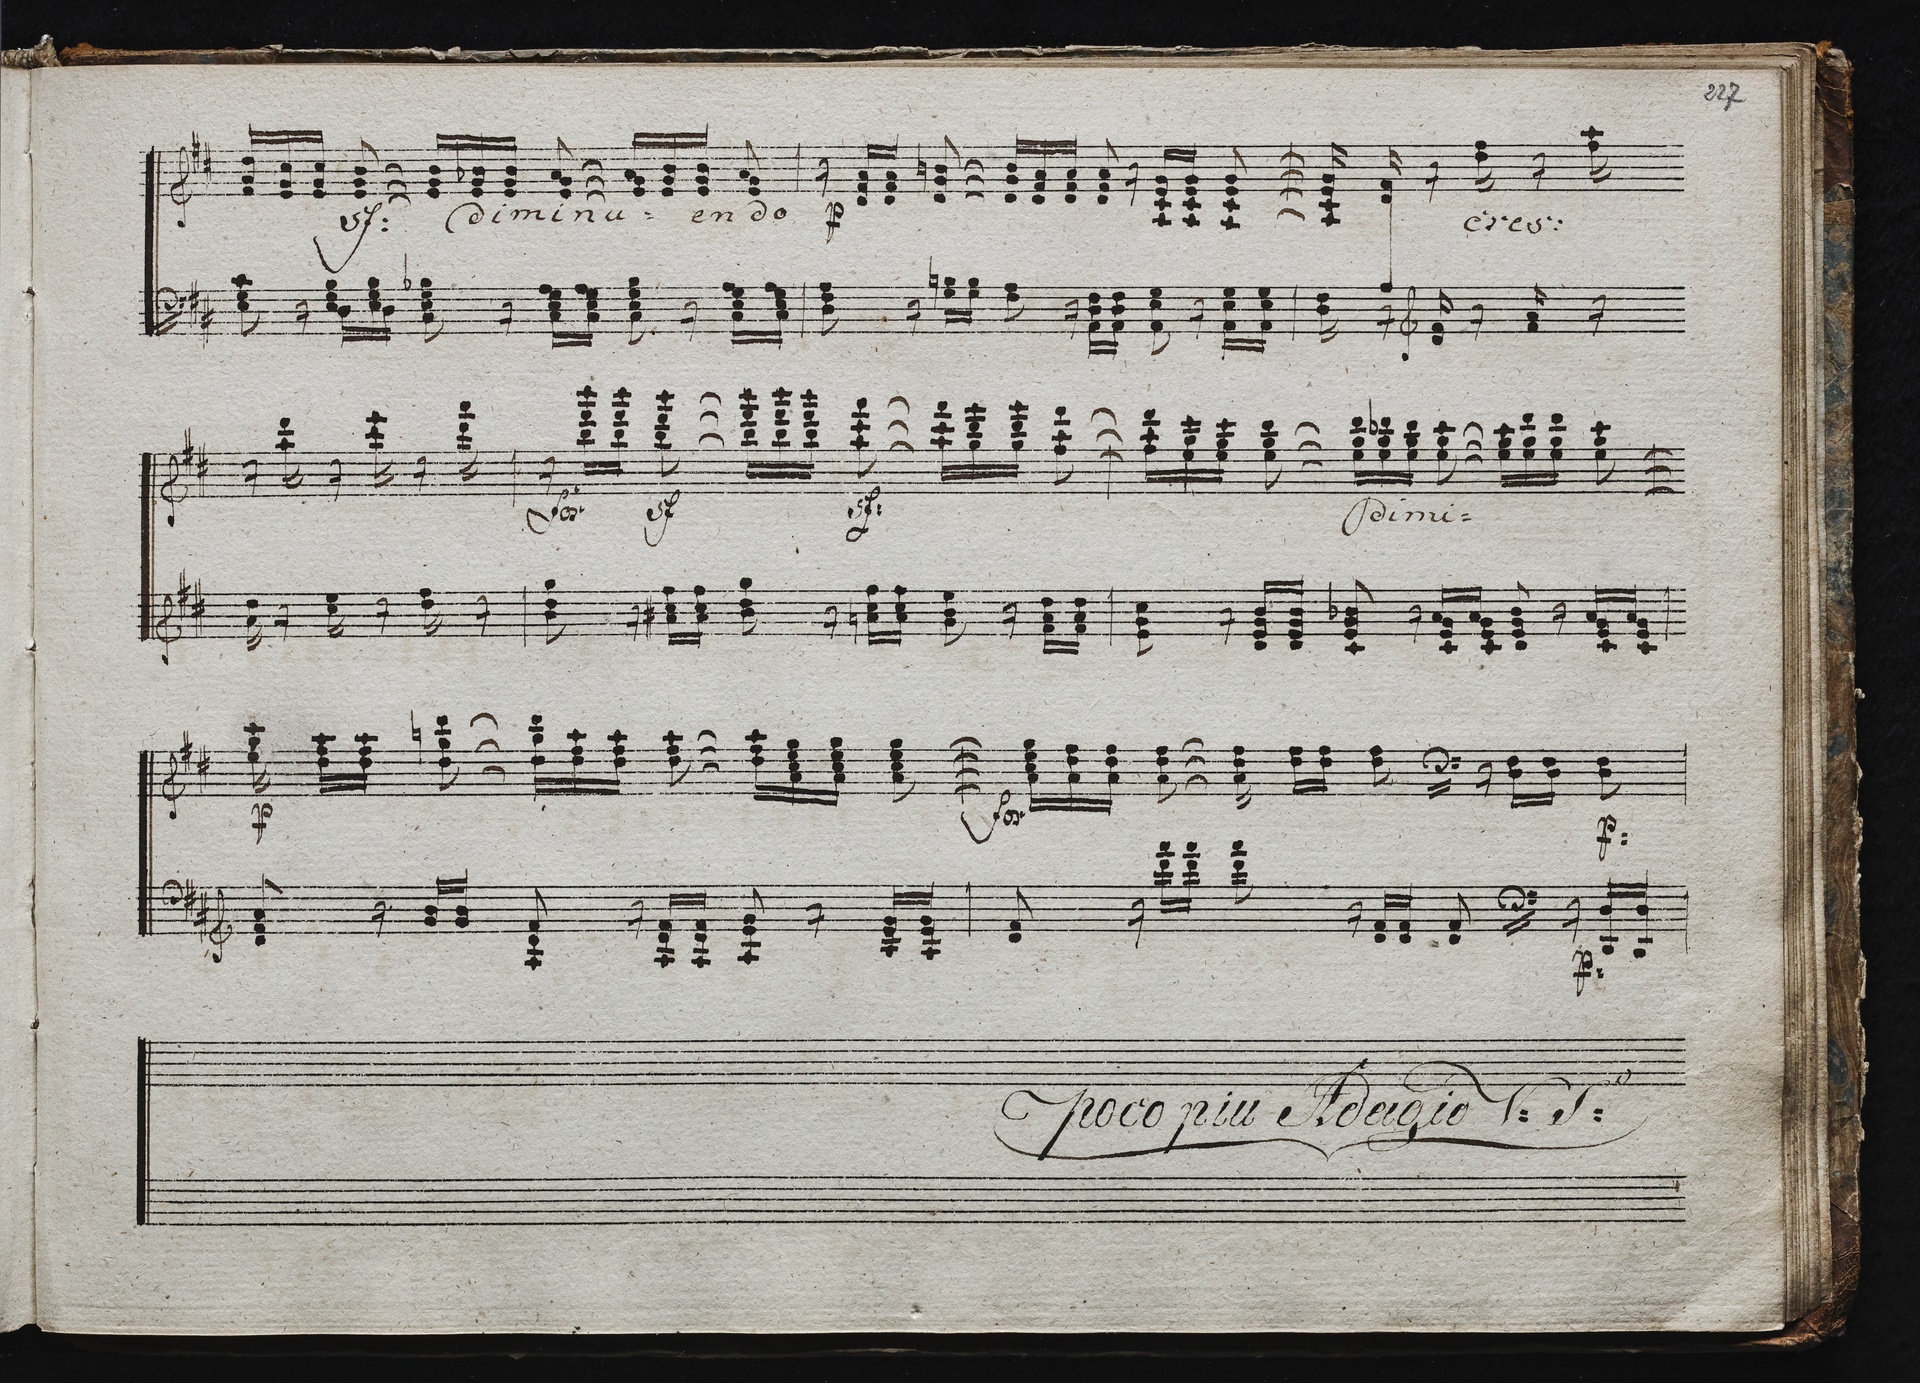 227
sf: diminu= endo p cres:
for sf sf: dimi=
p for p:
p:
poco piu Adagio V: S:o